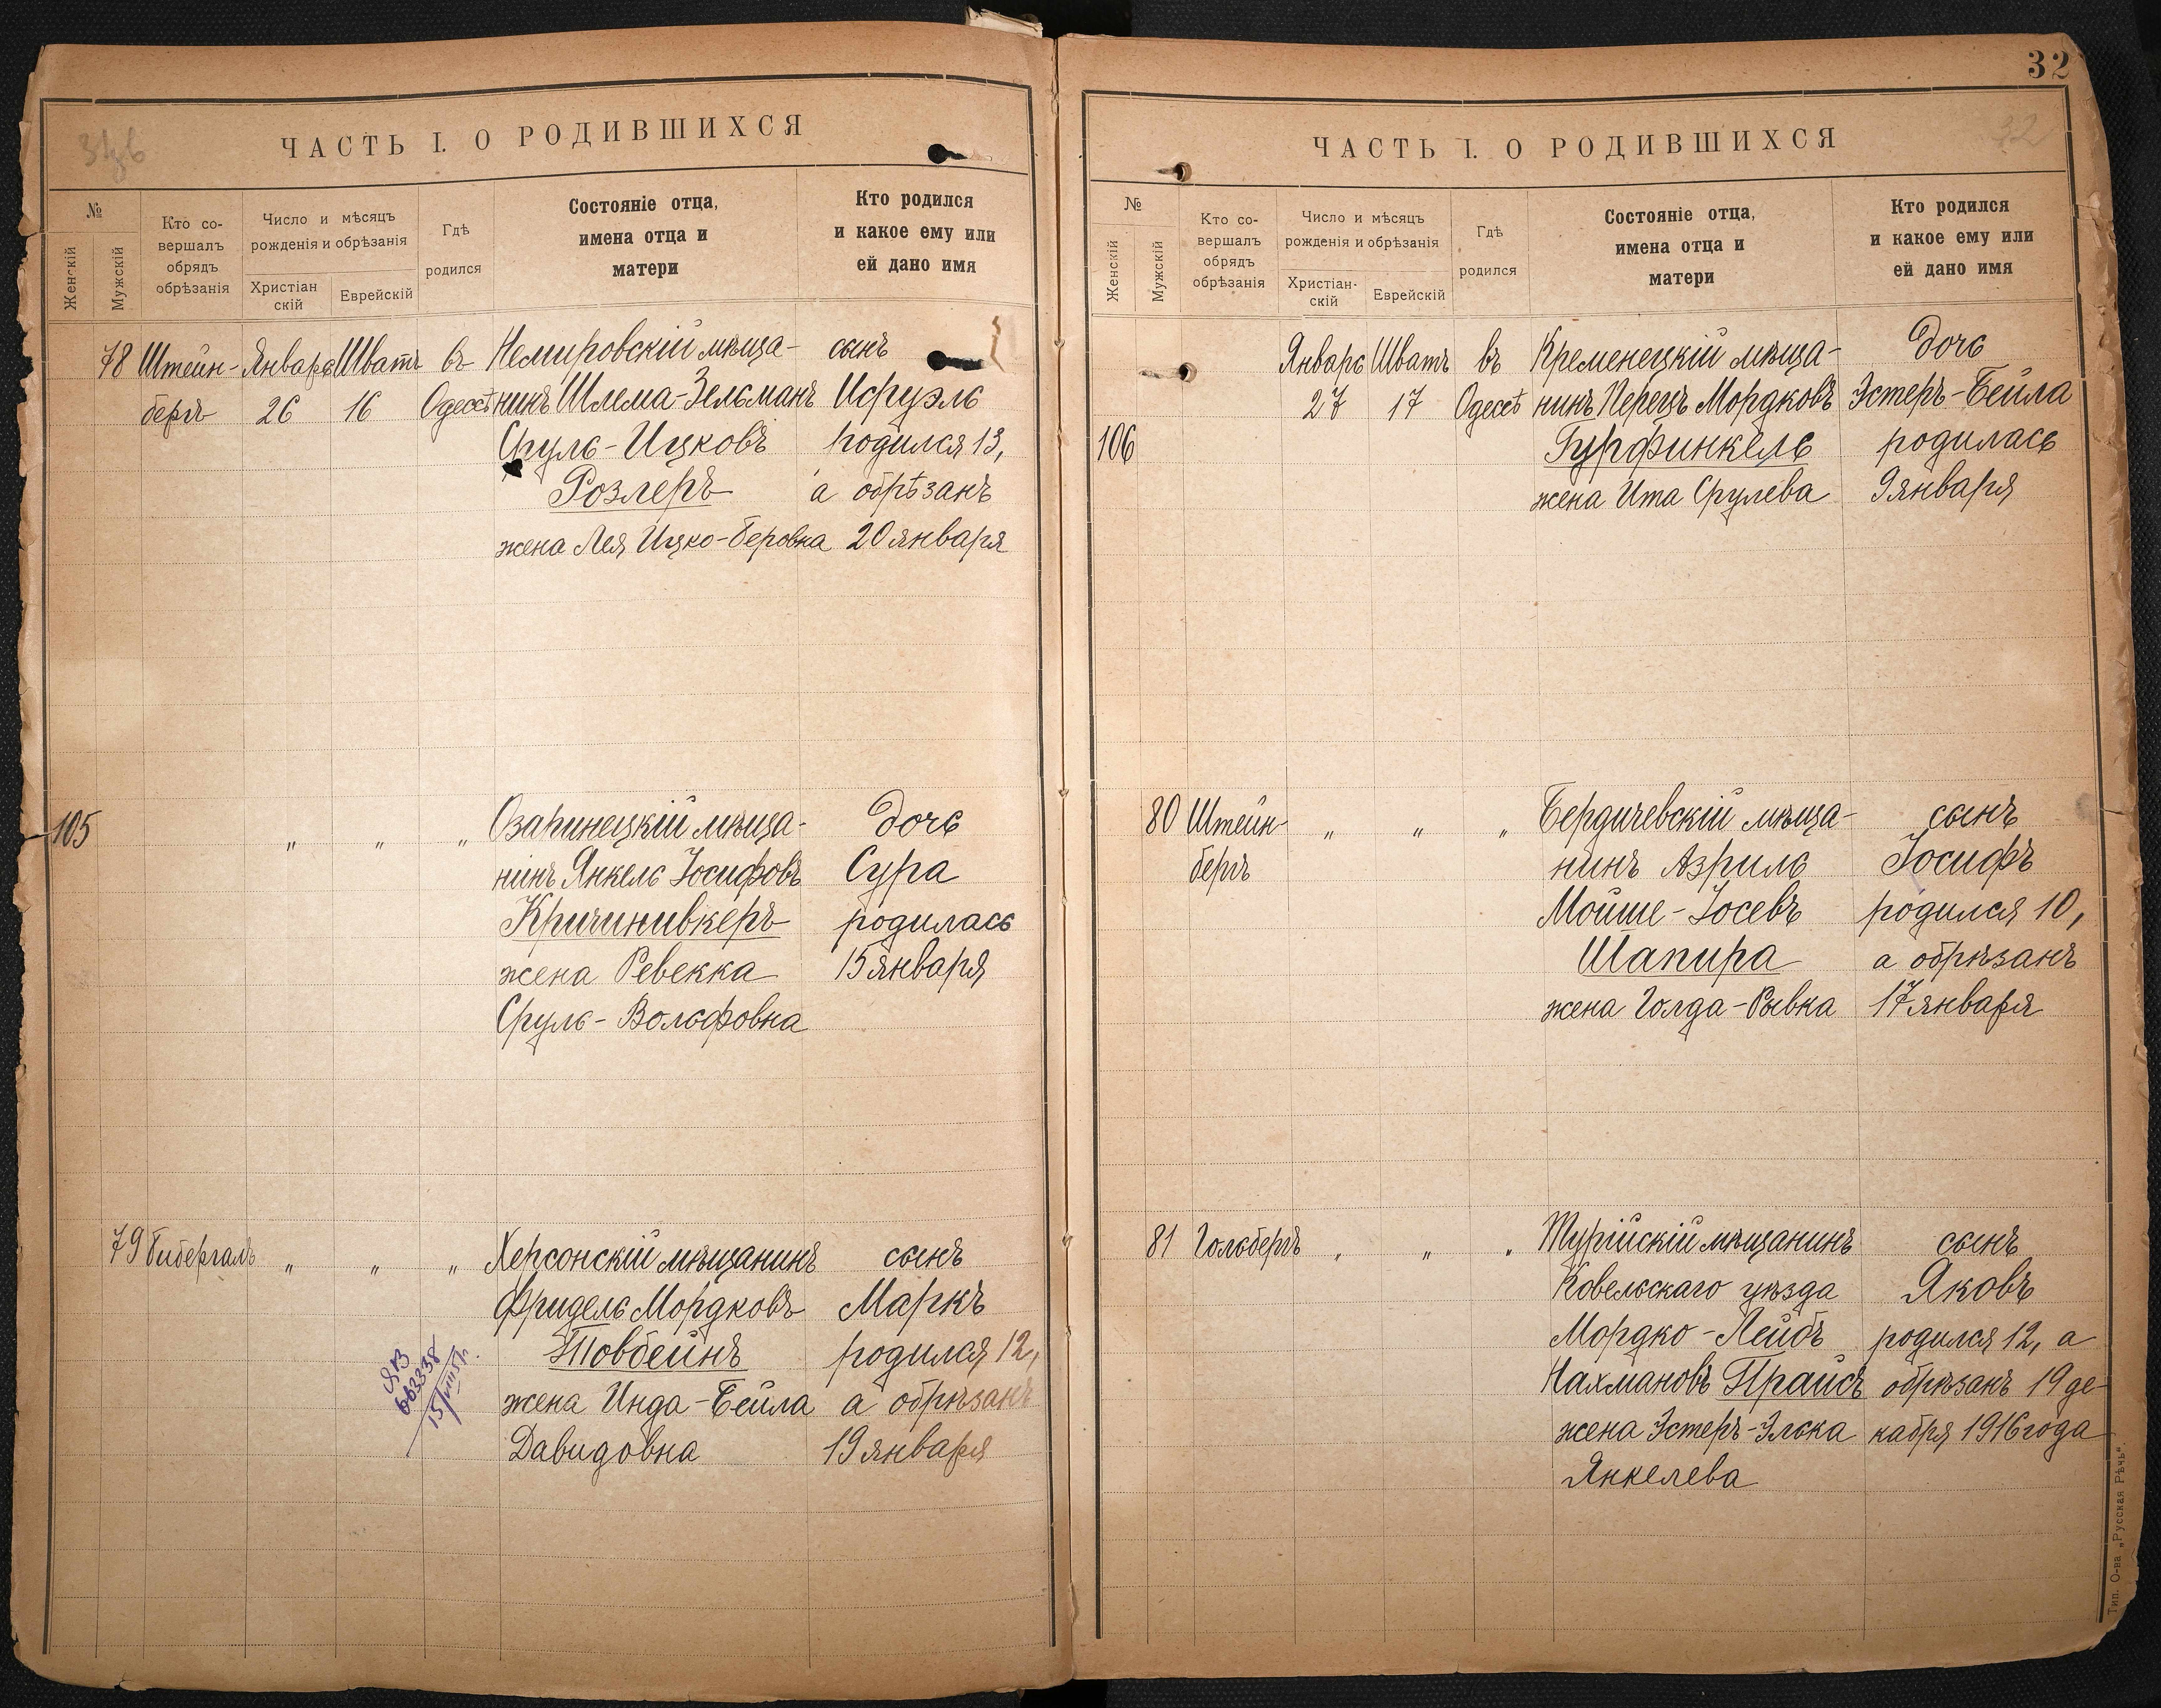 32
31 об
ЧАСТЬ I. О РОДИВШИХСЯ
№
Женскій
Мужскій
Кто со-
вершалъ
обрядъ
обрѣзанія
Число и мѣсяцъ
рожденія и обрѣзанія
Христіан
скій
Еврейскій
Гдѣ
родился
Состояніе отца,
имена отца и
матери
Кто родился
и какое ему или
ей дано имя
78 Штейн- Январь Шватъ въ Немировскій мѣща- сынъ
бергъ 26 16 Одессѣ нинъ Шлема-Зельманъ Исруэль
Сруль-Ицковъ родился 13,
Розлеръ а обрѣзанъ
жена Лея Ицко-Беровна 20 января
105 " " " Озаринецкій мѣща- дочь
нинъ Янкель Іосифовъ Сура
Кричинивкеръ родилась
жена Ревекка 15 января
Сруль-Вольфовна
79 Бибергалъ " " " Херсонскій мѣщанинъ сынъ
Фридель Мордковъ Маркъ
Товбейнъ родился 12,
жена Инда-Бейла а обрѣзанъ
Давидовна 19 января
663338
15/VIII 51 г.
ЧАСТЬ I. О РОДИВШИХСЯ
32
№
Женскій
Мужскій
Кто со-
вершалъ
обрядъ
обрѣзанія
Число и мѣсяцъ
рожденія и обрѣзанія
Христіан-
скій
Еврейскій
Гдѣ
родился
Состояніе отца,
имена отца и
матери
Кто родился
и какое ему или
ей дано имя
Январь Шватъ въ Кременецкій мѣща- дочь
27 17 Одессѣ нинъ Перецъ Мордковъ Эстеръ-Бейла
106 Гурфинкель родилась
жена Ита Срулева 9 января
80 Штейн- " " " Бердичевскій мѣща- сынъ
бергъ нинъ Азриль Іосифъ
Мойше-Іосевъ родился 10,
Шапира а обрѣзанъ
жена Голда-Рывка 17 января
81 Гольбергъ " " " Турійскій мѣщанинъ сынъ
Ковельскаго уѣзда Яковъ
Мордко-Лейбъ родился 12, а
Нахмановъ Прайсъ обрѣзанъ 19 де-
жена Эстеръ-Элька кабря 1916 года
Янкелева
Тип. О-ва „Русская Рѣчь“.